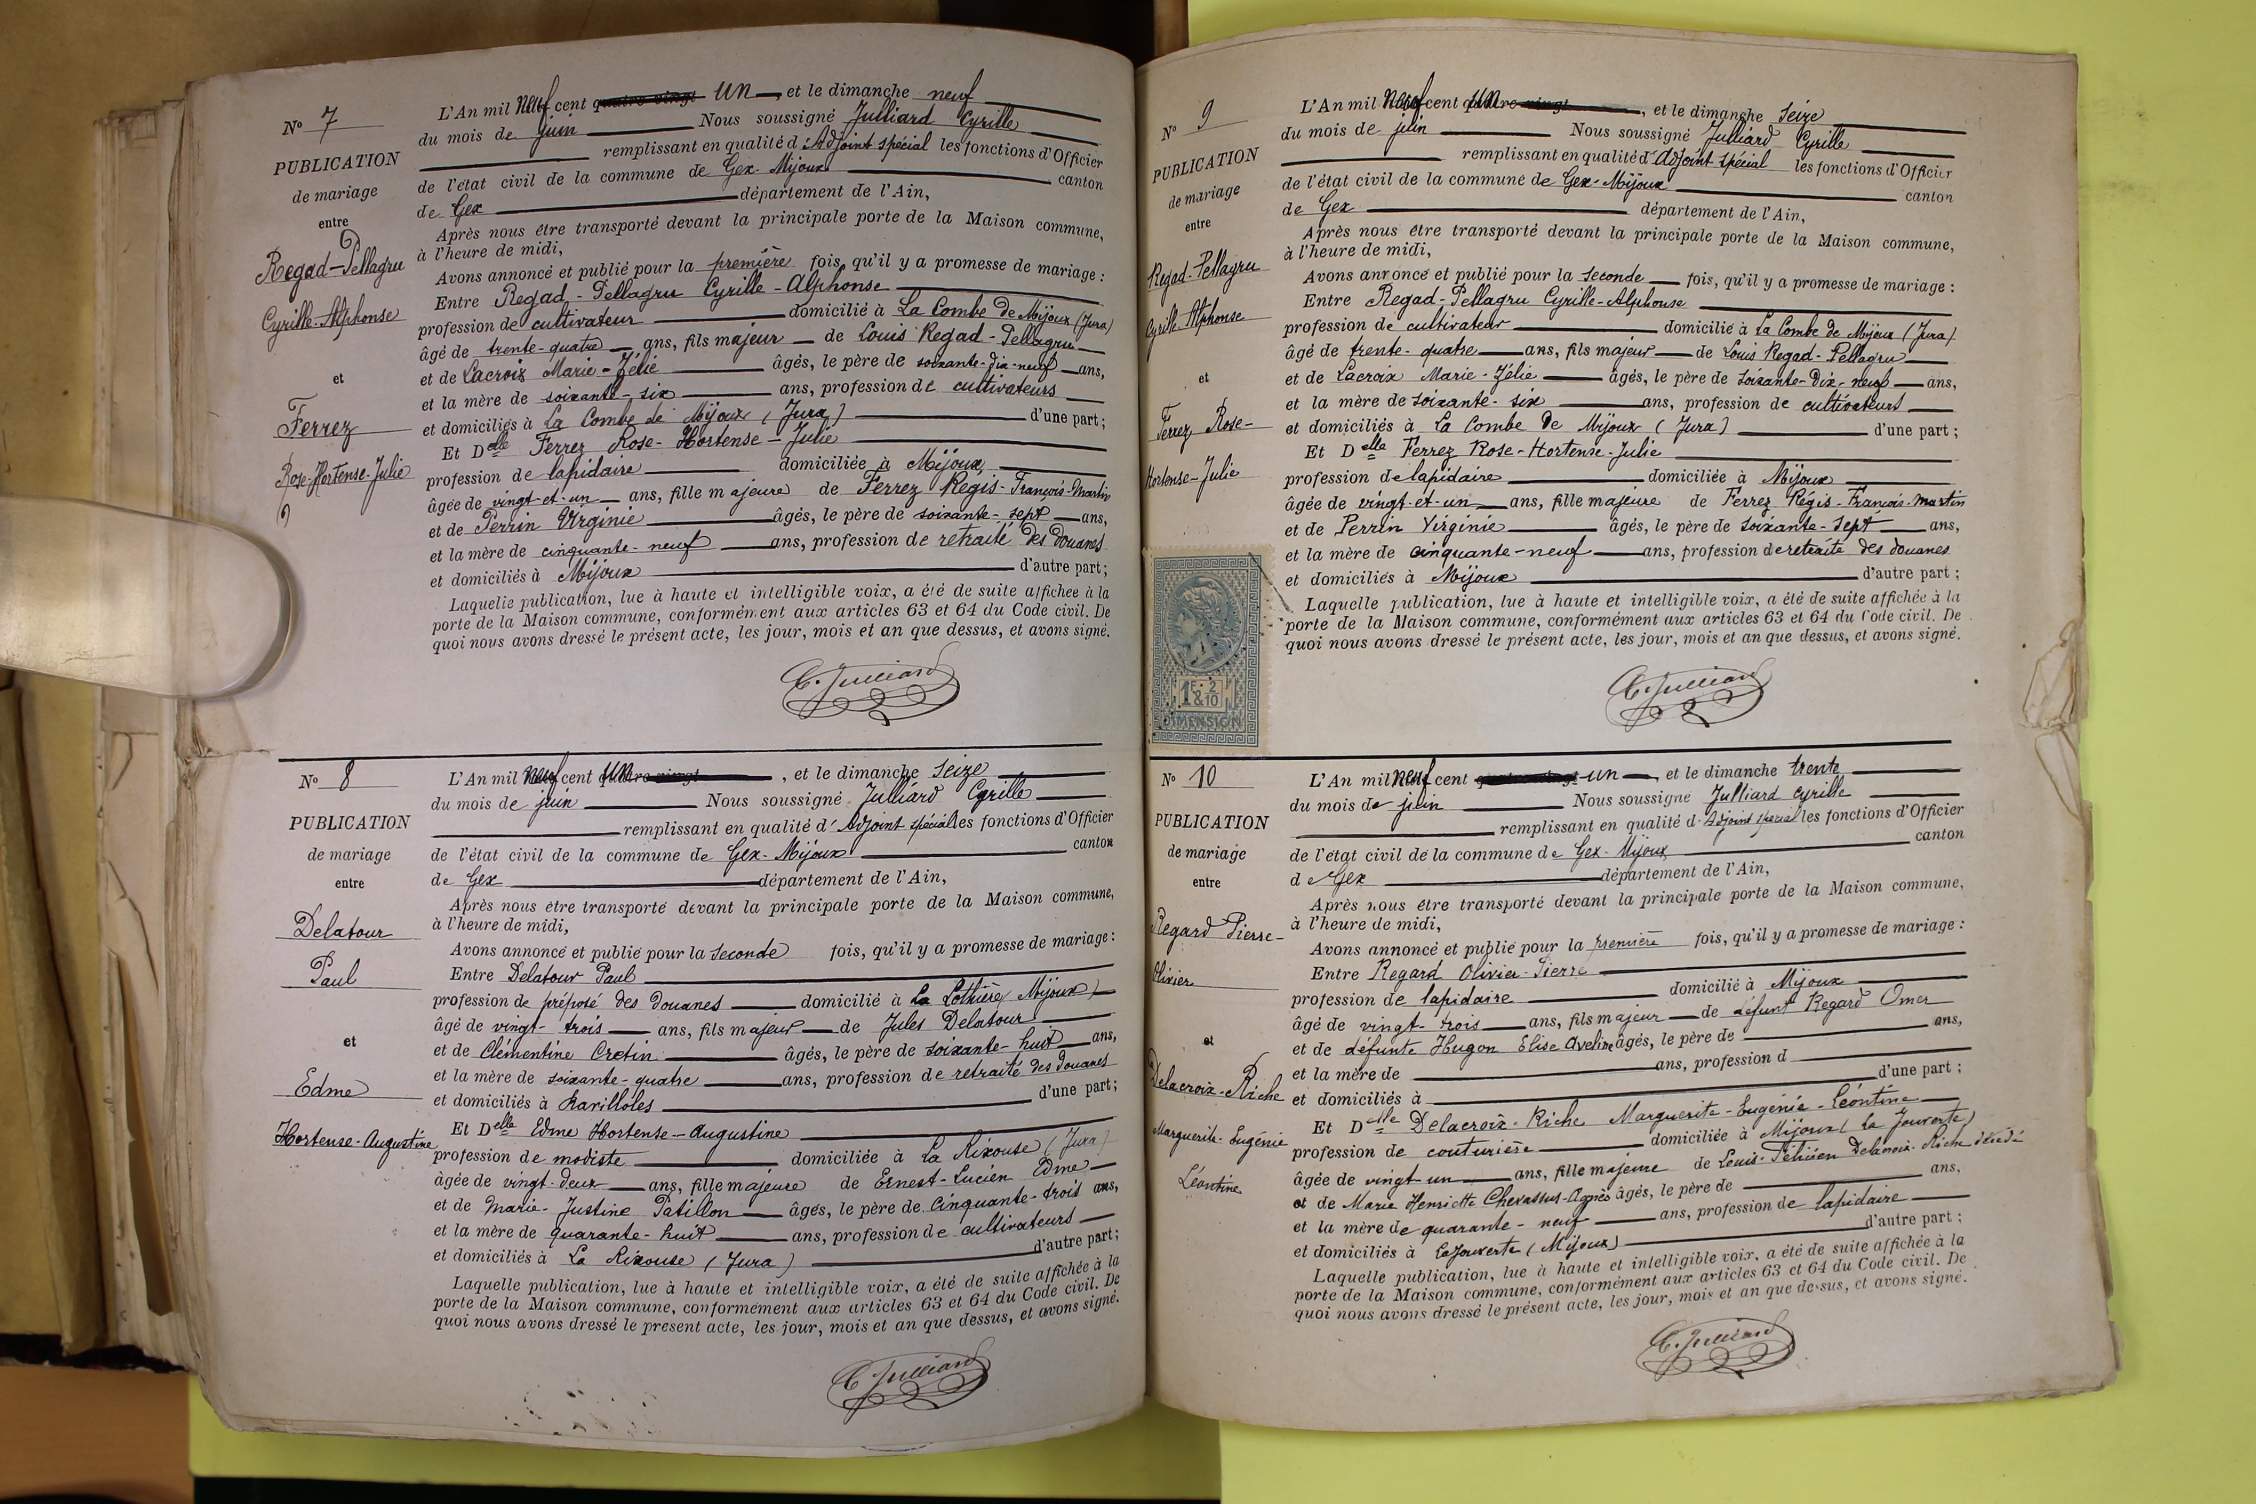 N° 7
PUBLICATION
de mariage
entre
Regad-Pellagru
Cyrille-Alphonse
et
Ferrez
Rose-Hortense-Julie
L'An mil neuf cent quatre-vingt un, et le dimanche neuf
du mois de juin Nous soussigné Julliard Cyrille
remplissant en qualité d'Adjoint spécial les fonctions d'Officier
de l'état civil de la commune de Gex-Mijoux canton
de Gex département de l'Ain,
Après nous être transporté devant la principale porte de la Maison commune,
à l'heure de midi,
Avons annoncé et publié pour la première fois, qu'il y a promesse de mariage :
Entre Regad-Pellagru Cyrille-Alphonse
profession de cultivateur domicilié à La Combe de Mijoux (Jura)
âgé de trente-quatre ans, fils majeur de Louis Regad-Pellagru
et de Lacroix Marie-Zélie âgés, le père de soixante-dix-neuf ans,
et la mère de soixante-six ans, profession de cultivateurs
et domiciliés à La Combe de Mijoux (Jura) d'une part ;
Et Delle Ferrez Rose-Hortense-Julie
profession de lapidaire domiciliée à Mijoux
âgée de vingt-et-un ans, fille majeure de Ferrez Régis-François-Martin
et de Perrin Virginie âgés, le père de soixante-sept ans,
et la mère de cinquante-neuf ans, profession de retraité des douanes
et domiciliés à Mijoux d'autre part ;
Laquelle publication, lue à haute et intelligible voix, a été de suite affichée à la
porte de la Maison commune, conformément aux articles 63 et 64 du Code civil. De
quoi nous avons dressé le présent acte, les jour, mois et an que dessus, et avons signé.
C. Julliard
N° 8
PUBLICATION
de mariage
entre
Delatour
Paul
et
Edme
Hortense-Augustine
L'An mil neuf cent quatre-vingt un, et le dimanche seize
du mois de juin Nous soussigné Julliard Cyrille
remplissant en qualité d'Adjoint spécial les fonctions d'Officier
de l'état civil de la commune de Gex-Mijoux canton
de Gex département de l'Ain,
Après nous être transporté devant la principale porte de la Maison commune,
à l'heure de midi,
Avons annoncé et publié pour la seconde fois, qu'il y a promesse de mariage :
Entre Delatour Paul
profession de préposé des douanes domicilié à La (Mijoux)
âgé de vingt-trois ans, fils majeur de Jules Delatour
et de Clémentine Cretin âgés, le père de soixante-huit ans,
et la mère de soixante-quatre ans, profession de retraité des douanes
et domiciliés à Ravilloles d'une part ;
Et Delle Edme Hortense-Augustine
profession de modiste domiciliée à La Rixouse (Jura)
âgée de vingt-deux ans, fille majeure de Ernest-Lucien Edme
et de Marie-Justine Patillon âgés, le père de cinquante-trois ans,
et la mère de quarante-huit ans, profession de cultivateurs
et domiciliés à La Rixouse (Jura) d'autre part ;
Laquelle publication, lue à haute et intelligible voix, a été de suite affichée à la
porte de la Maison commune, conformément aux articles 63 et 64 du Code civil. De
quoi nous avons dressé le présent acte, les jour, mois et an que dessus, et avons signé.
C. Julliard
N° 9
PUBLICATION
de mariage
entre
Regad-Pellagru
Cyrille Alphonse
et
Ferrez Rose-
Hortense-Julie
1F & 2/10
DIMENSION
L'An mil neuf cent quatre-vingt un, et le dimanche seize
du mois de juin Nous soussigné Julliard Cyrille
remplissant en qualité d'Adjoint spécial les fonctions d'Officier
de l'état civil de la commune de Gex-Mijoux canton
de Gex département de l'Ain,
Après nous être transporté devant la principale porte de la Maison commune,
à l'heure de midi,
Avons annoncé et publié pour la seconde fois, qu'il y a promesse de mariage :
Entre Regad-Pellagru Cyrille-Alphonse
profession de cultivateur domicilié à La Combe de Mijoux (Jura)
âgé de trente-quatre ans, fils majeur de Louis Regad-Pellagru
et de Lacroix Marie-Zélie âgés, le père de soixante-dix-neuf ans,
et la mère de soixante-six ans, profession de cultivateurs
et domiciliés à La Combe de Mijoux (Jura) d'une part ;
Et Delle Ferrez Rose-Hortense-Julie
profession de lapidaire domiciliée à Mijoux
âgée de vingt-et-un ans, fille majeure de Ferrez Régis-François-Martin
et de Perrin Virginie âgés, le père de soixante-sept ans,
et la mère de cinquante-neuf ans, profession de retraité des douanes
et domiciliés à Mijoux d'autre part ;
Laquelle publication, lue à haute et intelligible voix, a été de suite affichée à la
porte de la Maison commune, conformément aux articles 63 et 64 du Code civil. De
quoi nous avons dressé le présent acte, les jour, mois et an que dessus, et avons signé.
C. Julliard
N° 10
PUBLICATION
de mariage
entre
Regard Pierre-
Olivier
et
Delacroix-Riche
Marguerite-Eugénie
Léontine
L'An mil neuf cent quatre-vingt un, et le dimanche trente
du mois de juin Nous soussigné Julliard Cyrille
remplissant en qualité d'Adjoint spécial les fonctions d'Officier
de l'état civil de la commune de Gex-Mijoux canton
de Gex département de l'Ain,
Après nous être transporté devant la principale porte de la Maison commune,
à l'heure de midi,
Avons annoncé et publié pour la première fois, qu'il y a promesse de mariage :
Entre Regard Olivier-Pierre
profession de lapidaire domicilié à Mijoux
âgé de vingt-trois ans, fils majeur de défunt Regard Omer
et de défunte Hugon Elise Aveline âgés, le père de ans,
et la mère de ans, profession d
et domiciliés à d'une part ;
Et Delle Delacroix-Riche Marguerite-Eugénie-Léontine
profession de couturière domiciliée à Mijoux (La Jouverte)
âgée de vingt-un ans, fille majeure de Louis-Félicien Delacroix-Riche décédé
et de Marie Henriette Chevassus-Agnès âgés, le père de ans,
et la mère de quarante-neuf ans, profession de lapidaire
et domiciliés à La Jouverte (Mijoux) d'autre part ;
Laquelle publication, lue à haute et intelligible voix, a été de suite affichée à la
porte de la Maison commune, conformément aux articles 63 et 64 du Code civil. De
quoi nous avons dressé le présent acte, les jour, mois et an que dessus, et avons signé.
C. Julliard